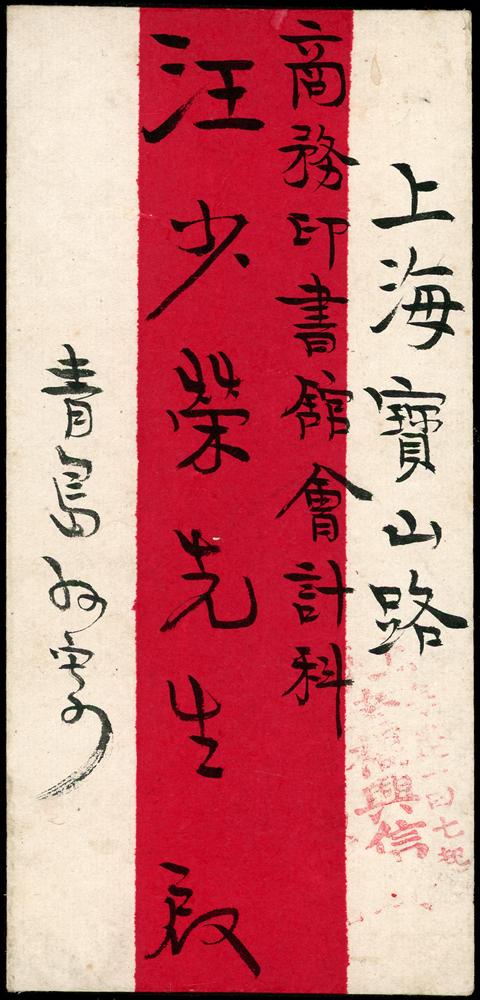 上海寶山路
商務印書館會計科
汪少榮先生啟
青島孙寄
興信
七